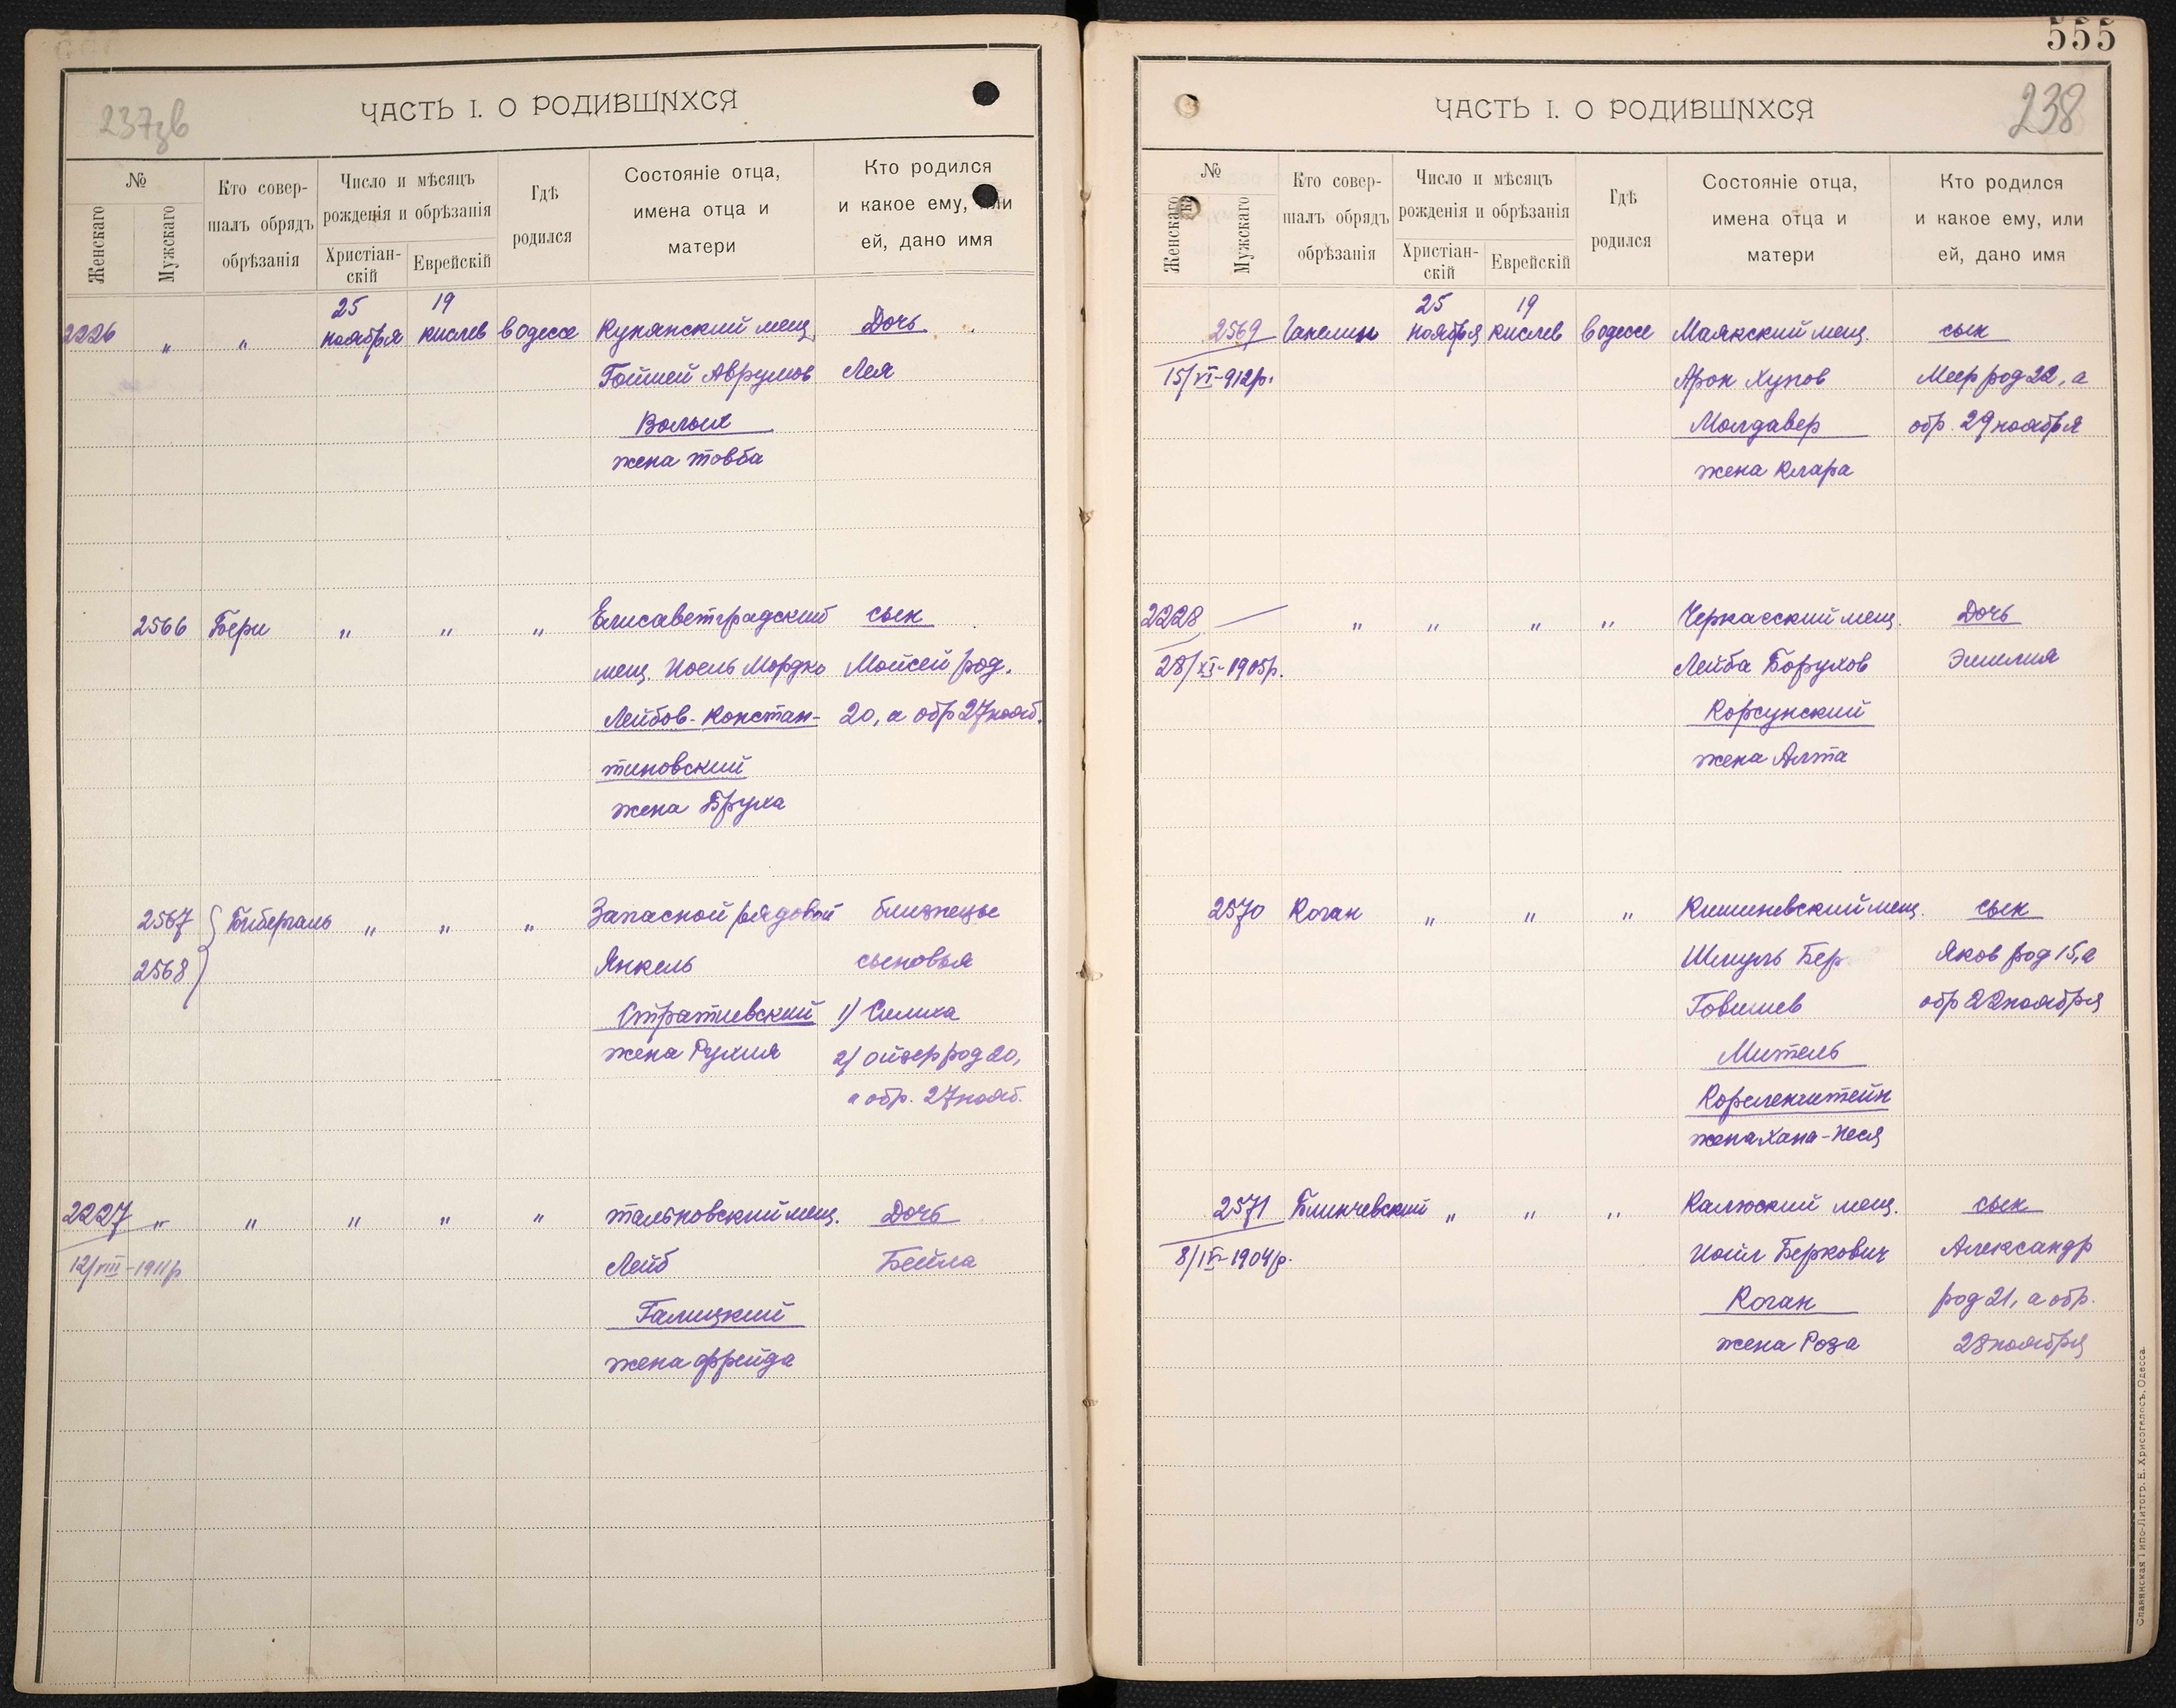 237зв
ЧАСТЬ I. О РОДИВШИХСЯ
№
Женскаго
Мужскаго
Кто совер-
шалъ обрядъ
обрѣзанія
Число и мѣсяцъ
рожденія и обрѣзанія
Христіан-
скій
Еврейскій
Гдѣ
родился
Состояніе отца,
имена отца и
матери
Кто родился
и какое ему, или
ей, дано имя
25 19
2226 " " ноября кислев в одессе Купянский мещ. Дочь
Гойшей Аврумов Лея
Волых
жена товба
2566 Бери " " " Елисаветградский сын
мещ. Иоель Мордко Мойсей род.
Лейбов-Констан- 20, а обр 27 нояб.
тиновский
жена Бруха
2567 Гиберталь " " " Запасной рядовой близнецы
2568 Янкель сыновья
Стратиевский 1) Симха
жена Рухля 2) Ойзер род 20,
а обр. 27 нояб.
2227 " " " " " тальновский мещ. Дочь
12/VIII-1911р Лейб Бейла
Галицкий
жена фрейда
555
238
ЧАСТЬ I. О РОДИВШИХСЯ
№
Женскаго
Мужскаго
Кто совер-
шалъ обрядъ
обрѣзанія
Число и мѣсяцъ
рожденія и обрѣзанія
Христіан-
скій
Еврейскій
Гдѣ
родился
Состояніе отца,
имена отца и
матери
Кто родился
и какое ему, или
ей, дано имя
25 19
2569 Ганелин ноября кислев в одессе Маякский мещ. сын
15/VI-912р. Арон Хунов Меер род 22, а
Молдавер обр. 29 ноября
жена Клара
2228 " " " " Черкасский мещ. Дочь
28/XI-1905р. Лейба Борухов Эмилия
Корсунский
жена Алта
2570 Коган " " " Кишиневский мещ. сын
Шмуль Бер Яков род 15, а
Говшиев обр 22 ноября
Митель
Корсленштейн
жена Хана-Неся
2571 Блинчевский " " " Калюский мещ. сын
8/IV-1904р. Иойл Беркович Александр
Коган род 21, а обр.
жена Роза 28 ноября
Славянская Типо-Литогр. Е. Хрисогелосъ, Одесса.